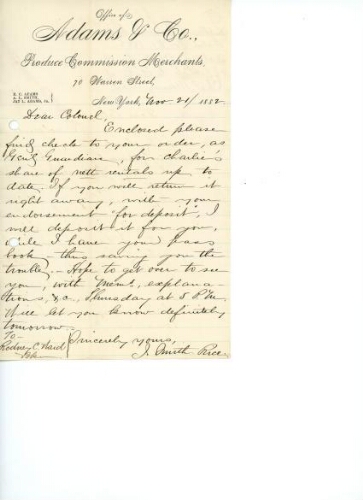 Office of
Adams & Co.,
Produce Commission Merchants,
76 Warren Street,
New York, Nov 21/ 1882
Dear Colonel,
Enclosed please
find checks to your order, as
Gen'l Guardian, for Charlie's
share of nett rentals up to
date. If you will return it
right away, with your
endorsement "for deposit", I
will deposit it for you,
while I have your pass
book - thus saving you the
trouble. - Hope to get over to see
you, with Mem's, explana-
tions, &c., Thursday at 5 P.M.
Will let you know definitely
tomorrow.
Sincerely yours,
J. Smith Rice
To -
Rodney C. Ward